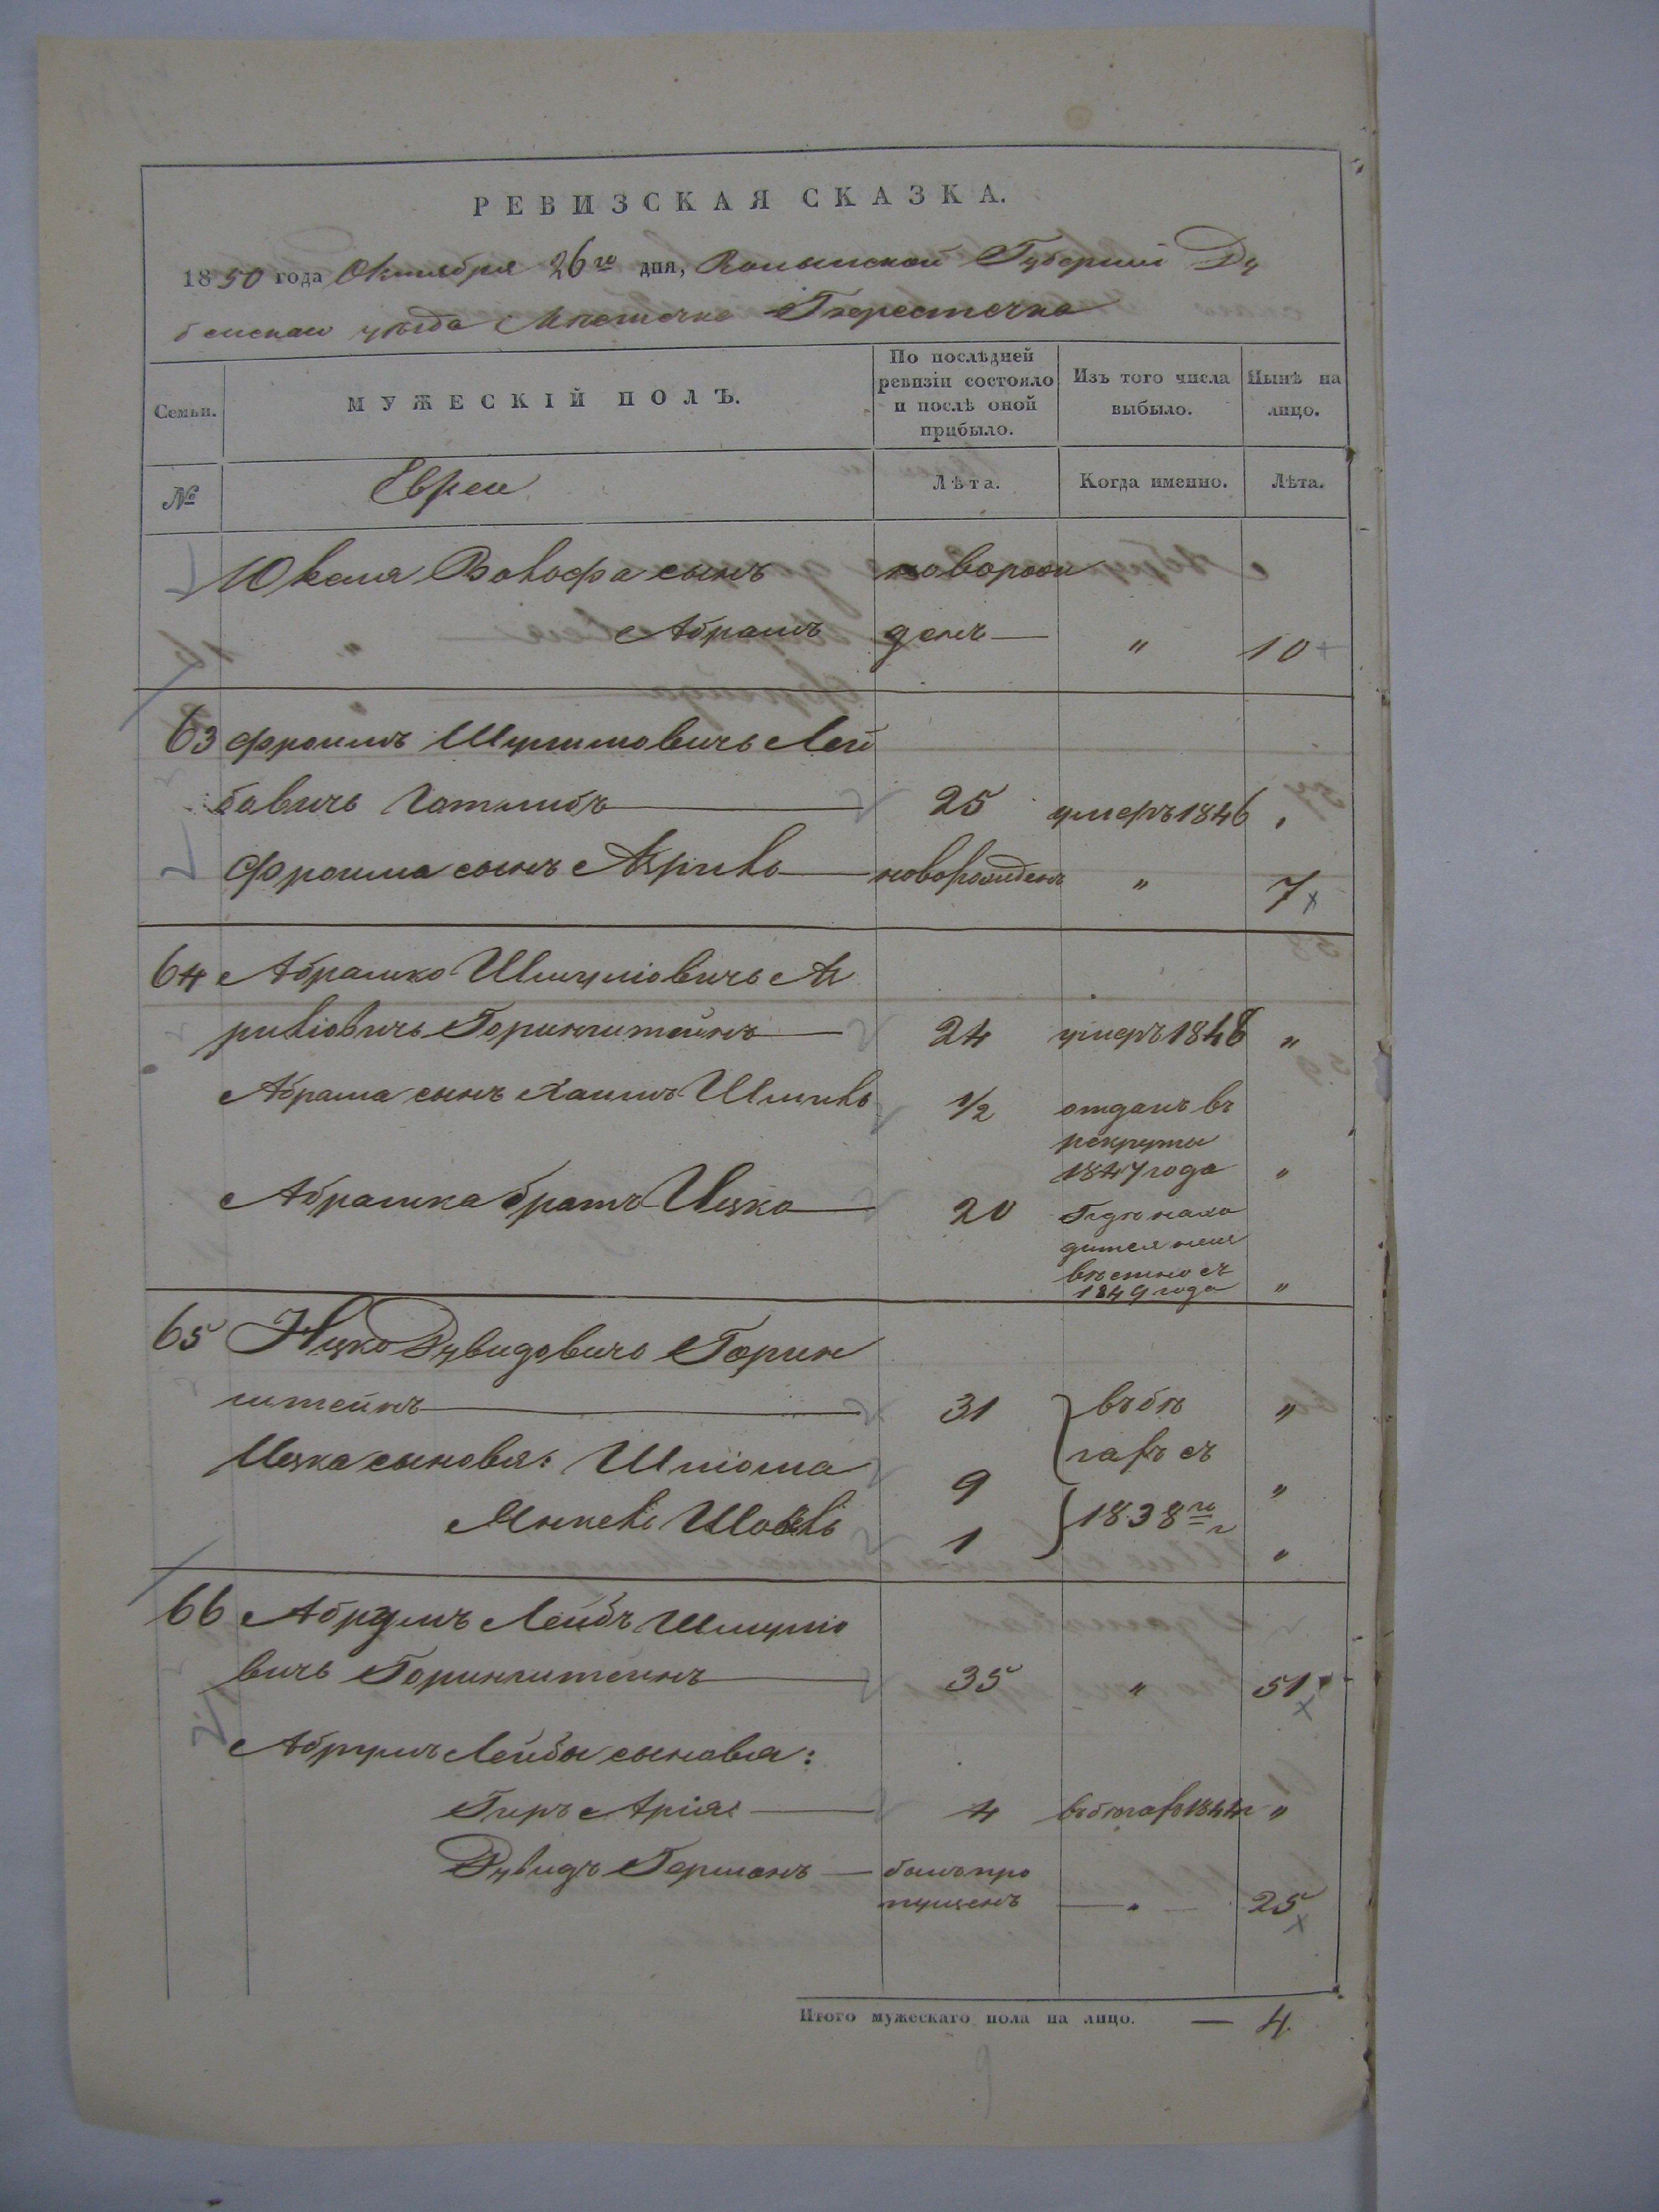 РЕВИЗСКАЯ СКАЗКА.
1850 года Октября 26го дня, Волынской Губерніи Ду
бенскаго уѣзда Мѣстечка Берестечка
Семьи.
МУЖЕСКІЙ ПОЛЪ.
По послѣдней
ревизіи состояло
и послѣ оной
прибыло.
Изъ того числа
выбыло.
Нынѣ на
лицо.
№
Евреи
Лѣта.
Когда именно.
Лѣта.
Юкеля Волфа сынъ новорож
Абрамъ денъ — " 10
63 Фроимъ Шулимовичъ Лей
бовичъ Готлибъ — 25 умеръ 1846 "
Фроима сынъ — новорожденъ " 7
64 Абрамко Шмуліовичъ
Горинштейнъ — 24 умеръ 1848 "
Абрама сынъ Хаимъ 1/2 отданъ въ
рекруты
1847 года "
Абрамка братъ Ицко — 20 Гдѣ нахо
дится неиз
вѣстно съ
1849 года "
65 Ицко Дувидовичъ Горин
штейнъ — 31 въ бѣ "
Ицка сыновья: Шліома 9 гахъ съ "
Янкель 1 1838го г "
66 Абрумъ Лейбъ Шмуліо
вичъ Горинштейнъ — 35 " 51
Абрумъ Лейбы сыновья:
Гиръ Арія — 4 въ бѣгахъ 1844 г "
Дувидъ Гершонъ — былъ про
пущенъ — " — 25
Итого мужескаго пола на лицо. — 4.